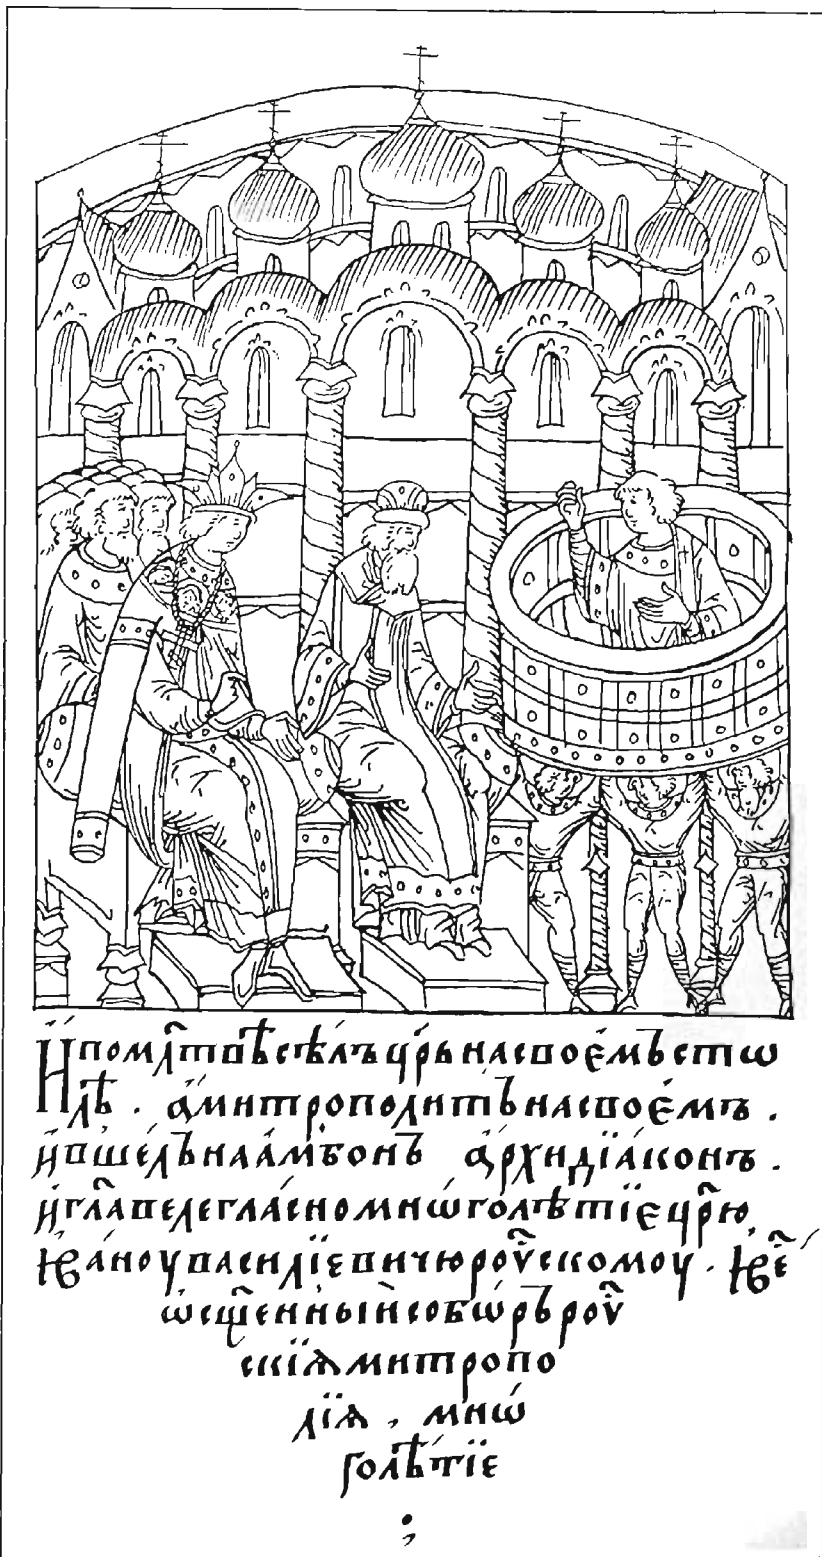 И҆ помл҃твѣ сѣлъ цр҃ь на своє́мъ стѡ
лѣ . а҆ митрополитъ на своє́мъ .
и҆ вше́дъ на а҆мбонъ а҆рхидїа́конъ .
и҆ гл҃а велегла́сно мнѡ́голѣтїє цр҃ю
І҆ва́ноу василїєвичю роу҃скомоу . І҆ вє҃
ѡсщ҃енныи҆ собѡ́ръ роу҃
скїꙗ митропо
лїꙗ , мнѡ́
голѣ́тїє